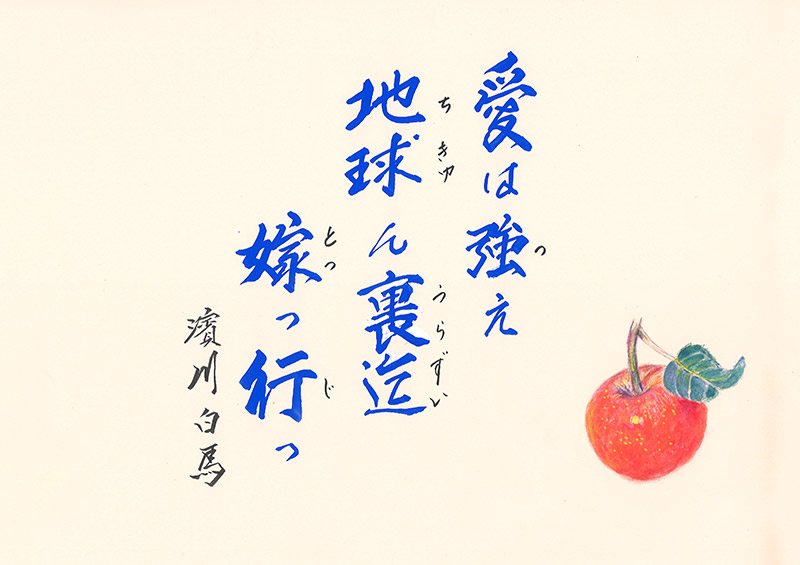 愛は強え
地球ん裏迄
嫁っ行っ
濱川白馬
つ
ちきゅ
うらずい
とつ
じ